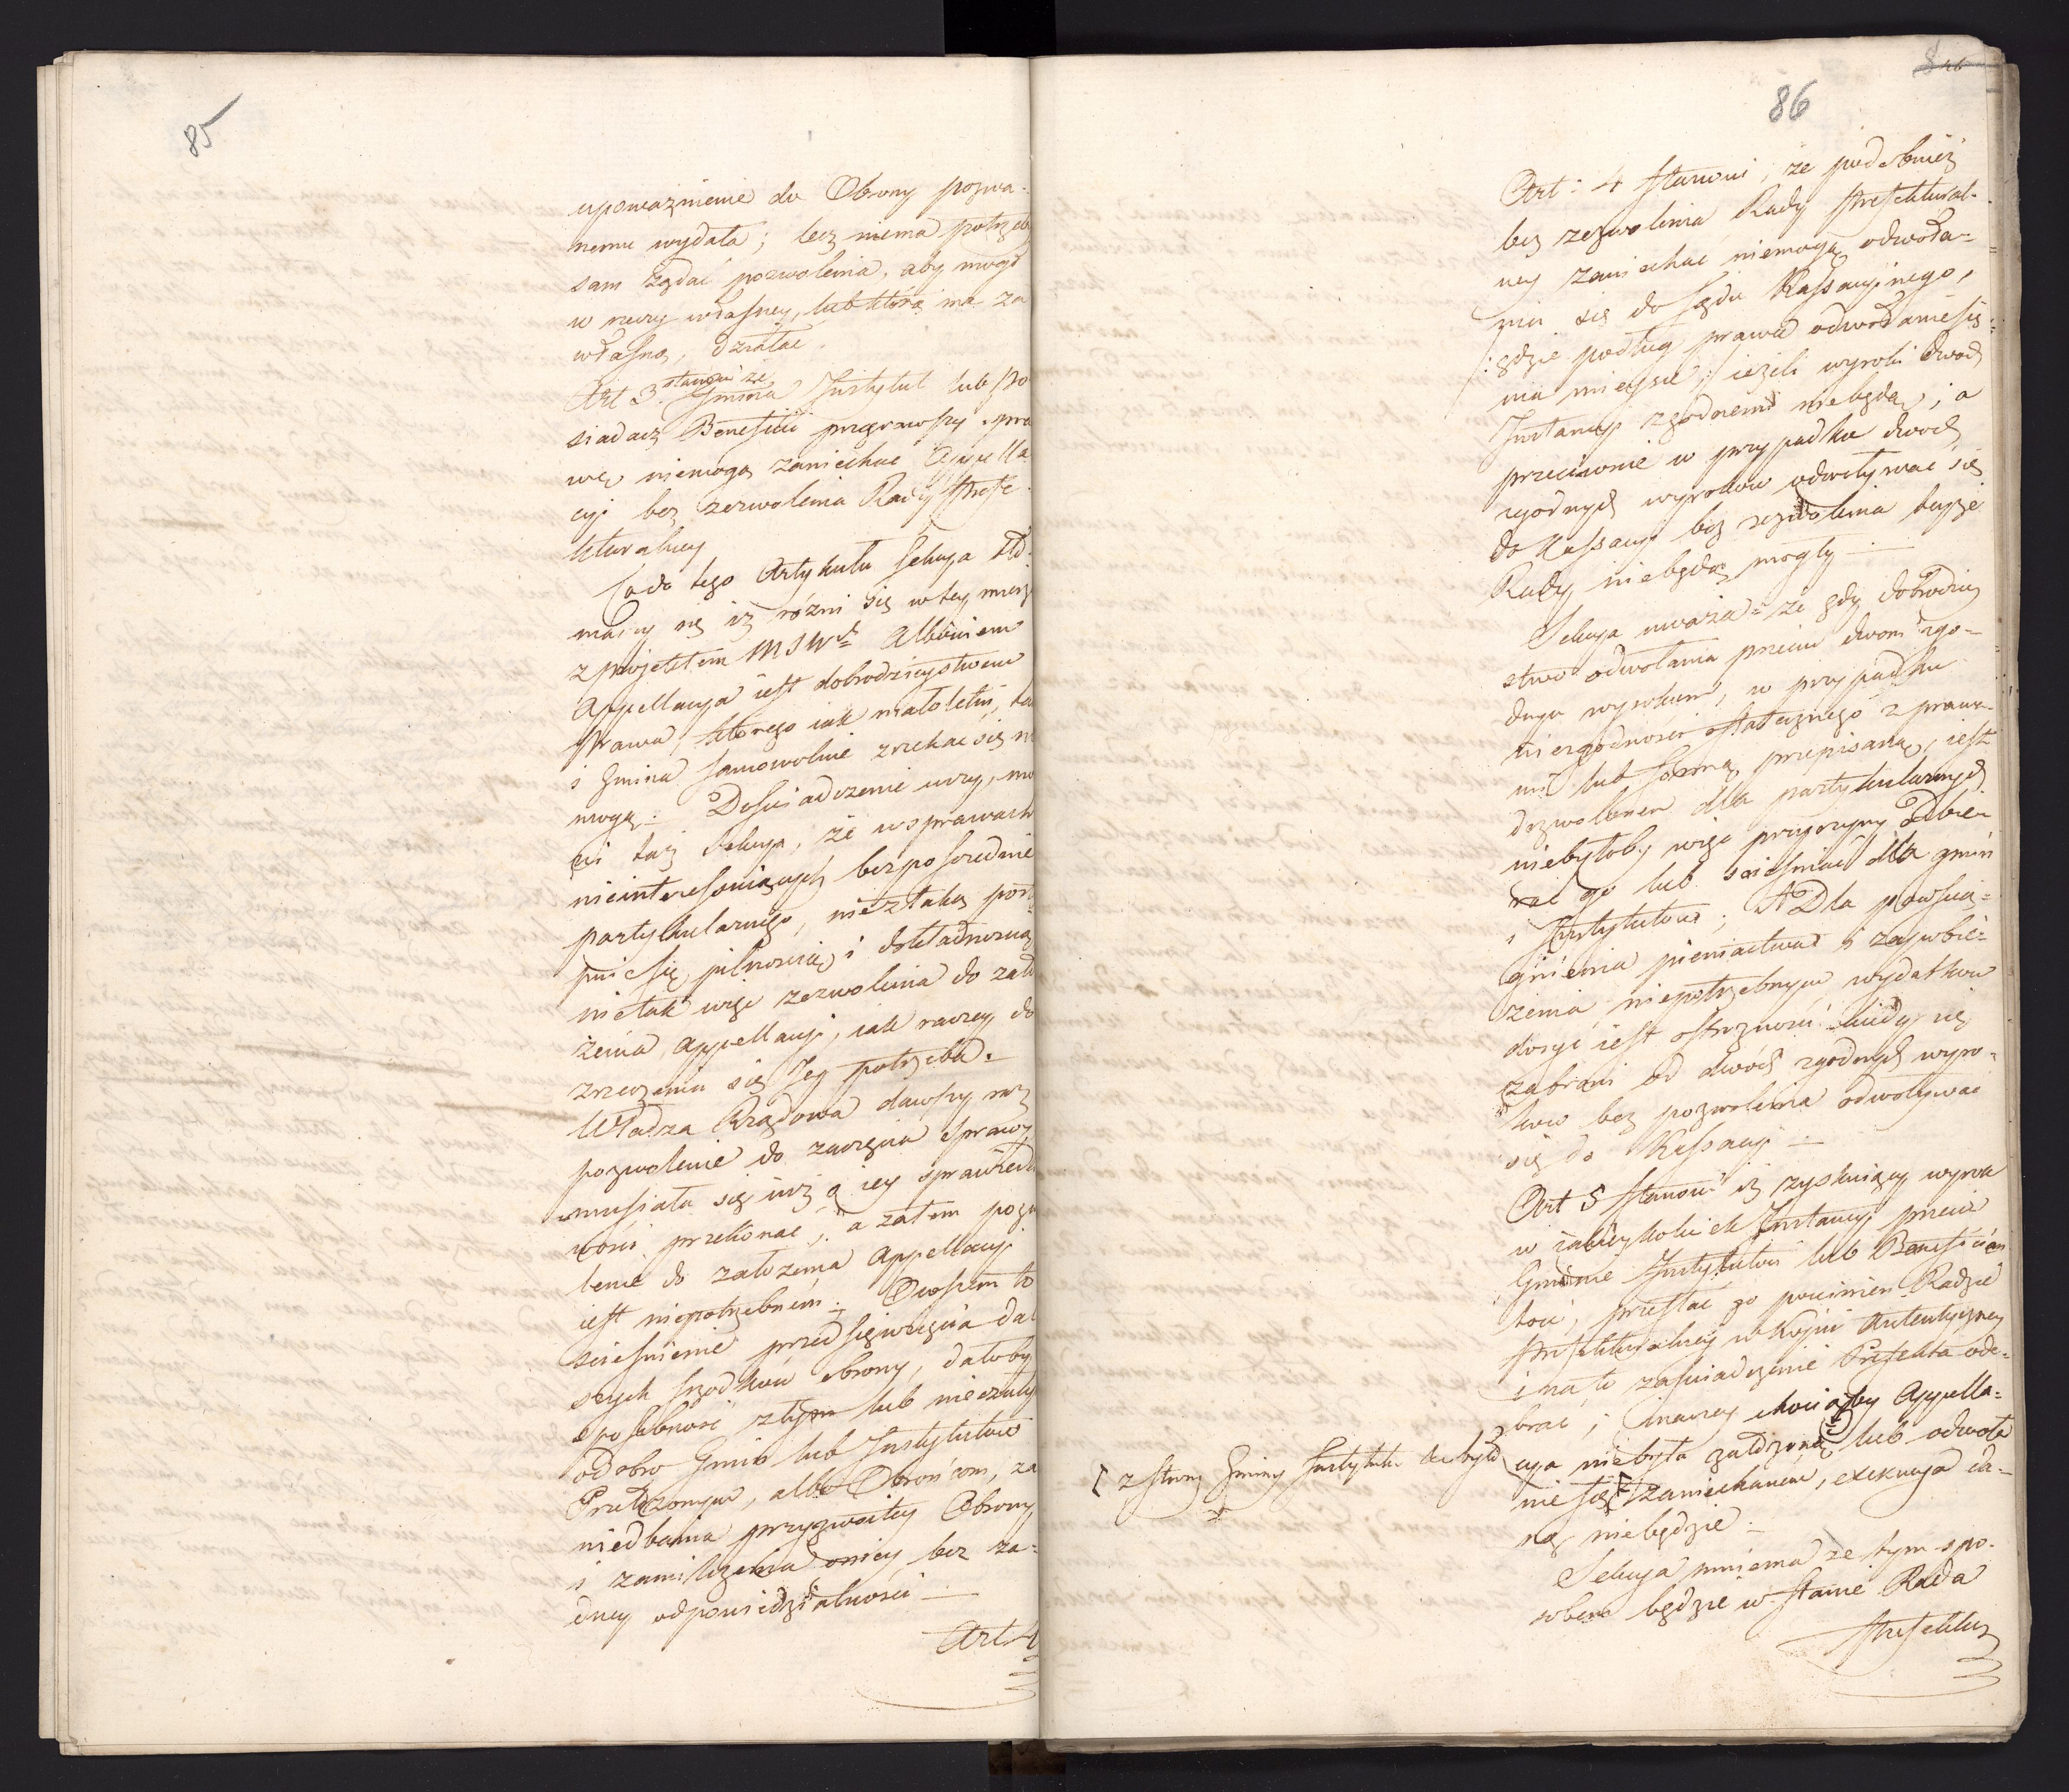 85
upoważnienie do Obrony pozwa-
nemu wydała; lecz niema potrzeby
sam żądać pozwolenia, aby mógł
w rzeczy własney, lub którą ma za
własną, działać.
stanowi że
Art 3. Gmina Instytut lub Po
siadacz Beneficii przegrawszy spra
wę niemogą zaniechać Appella
cyi bez zezwolenia Rady Prefe
kturalney
Co do tego Artykułu Sekcya
maczy się iż różni się w tey mierze
z projektem MSW Albowiem
Appellacya iest dobrodzieystwem
prawa, którego iak małoletni, ta
i Gmina samowolnie zrzekać się nie
mogą. Doświadczenie uczy, mó
wi taż Sekcya, że w sprawach
nieinteresuiących bezpośrednie
partykularnego, nieztaką postę
puie się pilnością i dokładnością
nietak więc zezwolenia do zało
żenia Appellacyi, iak raczey do
zrzeczenia się Jey potrzeba.
Władza Rządowa dawszy raz
pozwolenie do zaczęcia sprawy
musiała się iuż o iey sprawiedli
wości przekonać, a zatem pozwo
lenie do założenia Appellacyi
iest niepotrzebnem. Owszem to
ścieśnienie przedsięwzięcia dal
szych srzodków obrony, dałoby
sposobność złym lub nieczuły
o dobro Gmin lub Instytutów
Przełożonym, albo Obrońcom, za
niedbania przyzwoitey Obrony
i zamilczenia oniey bez ża-
dney odpowiedzialności —
Art 4
86
Art: 4 stanowi, że podobnież
bez zezwolenia Rady Prefektural-
ney zaniechać niemogą odwoła-
nia się do Sądu Kassacyinego,
gdzie podług prawa odwołanie się
ma mieysce; ieżeli wyroki dwóch
Instancyi zgodnemi niebędą; a
przeciwnie w przypadku dwóch
zgodnych wyroków odwoływać się
do Kassacyi bez zezwolenia teyże
Rady niebędą mogły —
Sekcya uważa że gdy dobrodziey
stwo odwołania przeciw dwom zgo-
dnym wyrokom, w przypadku
niezgodności ostatecznego z prawa-
mi lub formą przepisaną, iest
dozwolonem dla partykularnych
niebyłoby więc przyczyny odbie-
rać go lub ścieśniać dla gmin
i Instytutów; A Dla powścią-
gnienia pieniactwa i zapobie-
żenia niepotrzebnym wydatkom
dosyć iest ostrożności kiedy się
zabroni od dwóch zgodnych wyro-
ków bez pozwolenia odwoływać
się do Kassacyi —
Art 5 stanowi iż zyskuiący wyrok
w iakieykolwiek Instancyi przeciw
Gminie Instytutowi lub Beneficien
towi, przesłać go powinien Radzie
Prefekturalney w Kopii Autentyczney
i na to zaświadczenie Prefekta ode-
brać; inaczey chociażby Appella-
cya niebyła założoną lub odwoła
nie się zaniechanem, exekucya da-
ną niebędzie.
[ z strony Gminy Instytutu
Sekcya mniema że tym spo-
sobem będzie w stanie Rada
Prefektur